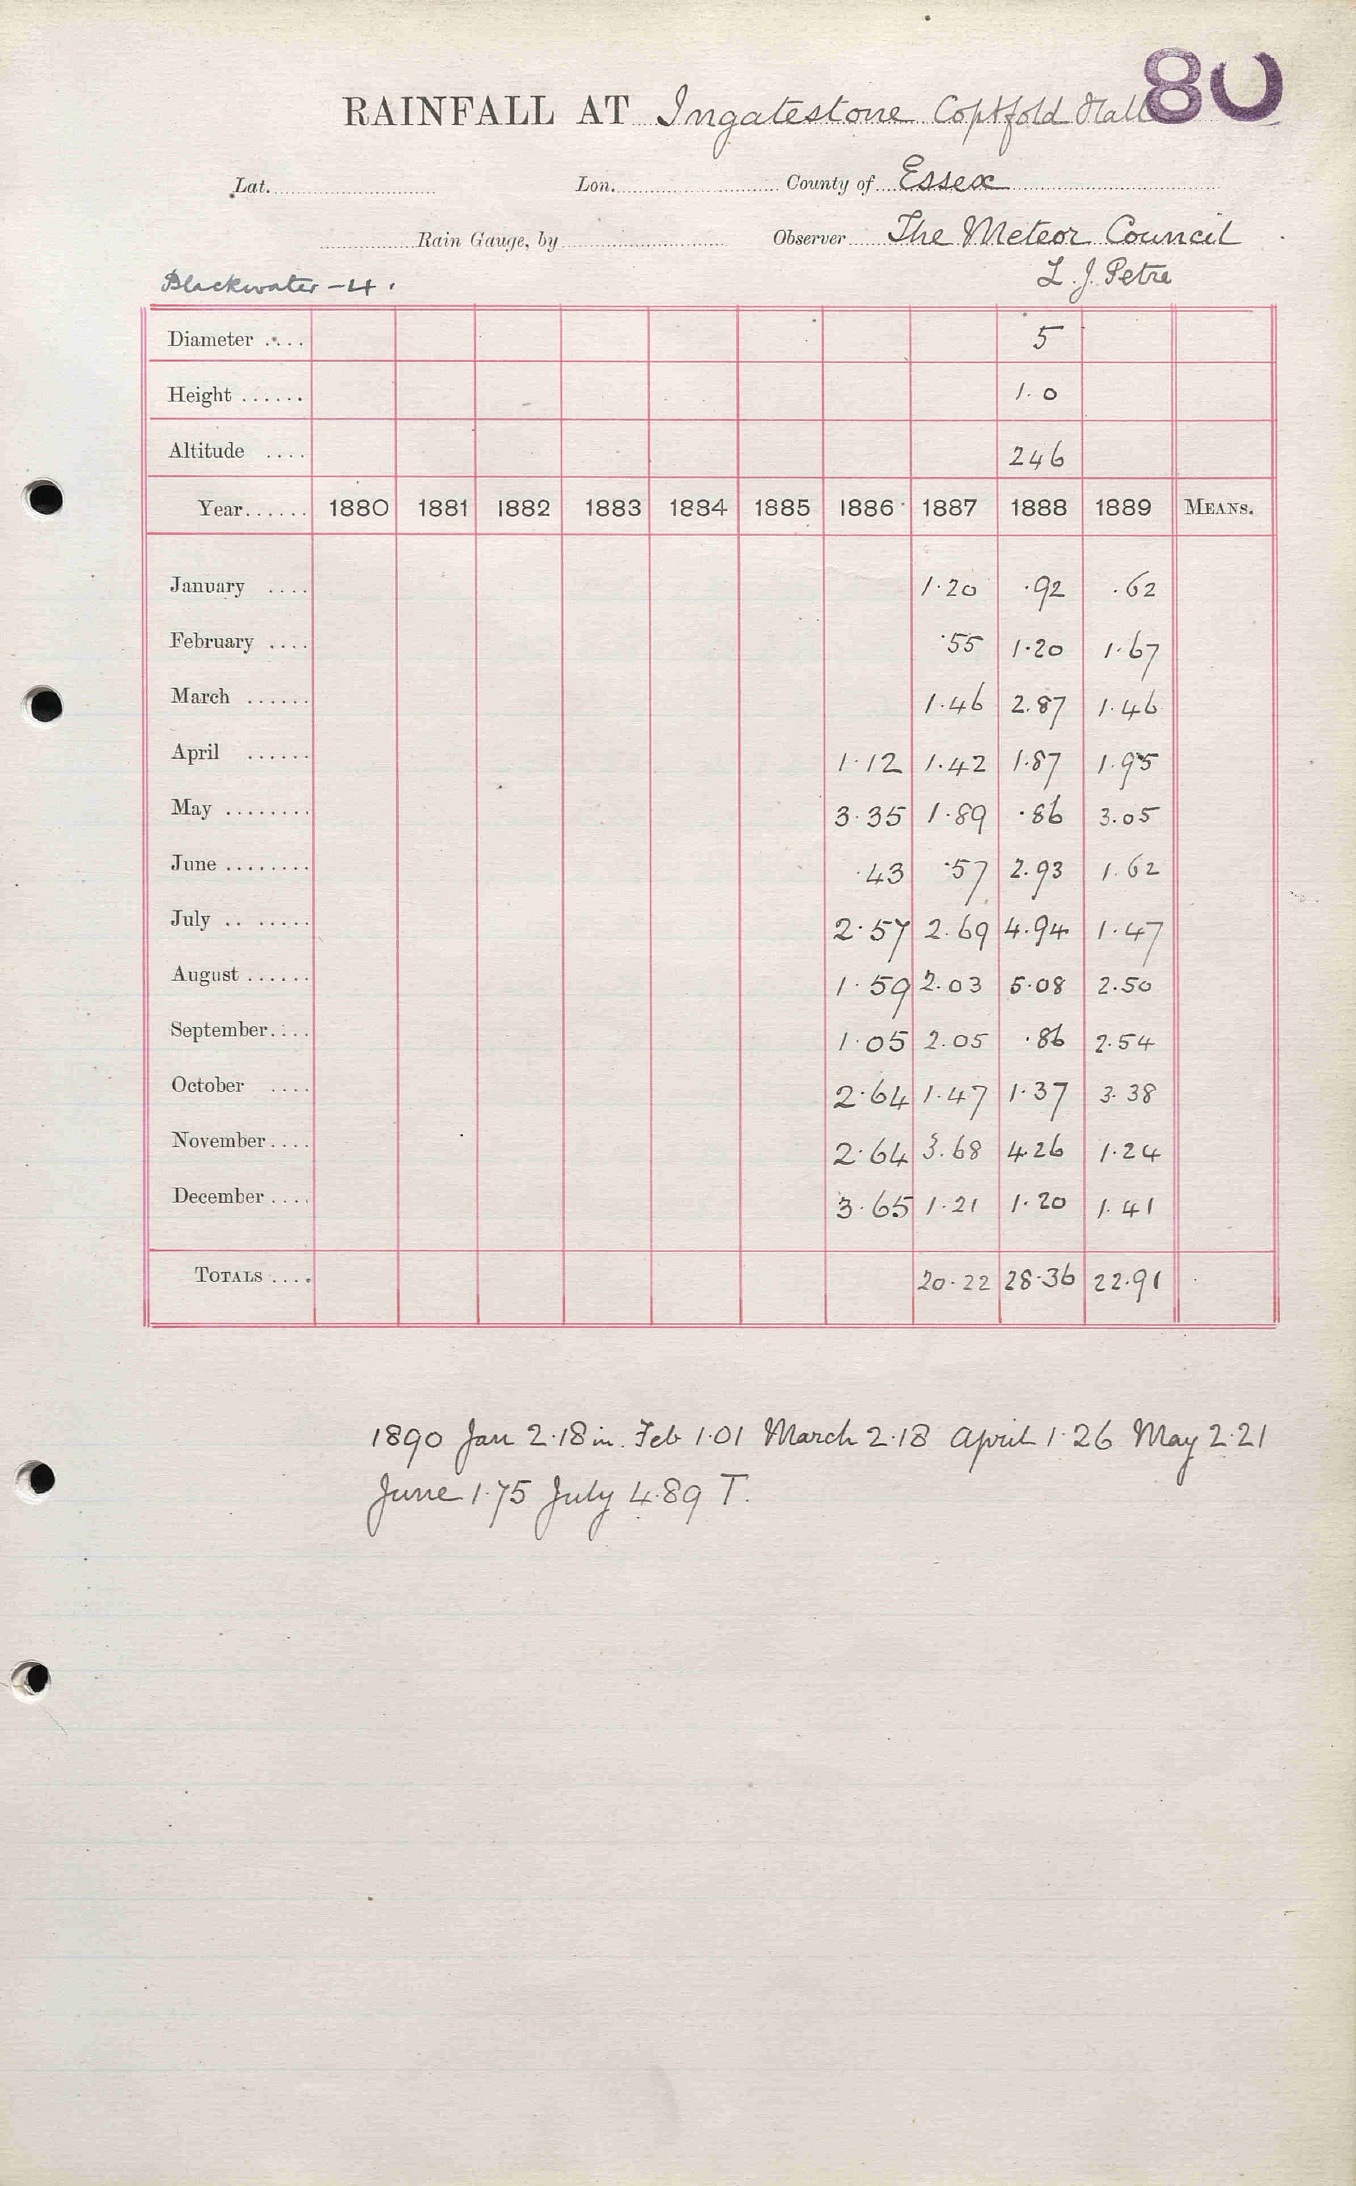 80
RAINFALL AT Ingatestone Coptfold Hall
Lat. Lon. County of Essex
Rain Gauge, by Observer The Meteor Council
Blackwater - 4. L. J. Petre
Diameter .... 5
Height ...... 1.0
Altitude .... 246
Year...... 1880 1881 1882 1883 1884 1885 1886 1887 1888 1889 MEANS.
January .... 1.20 .92 .62
February .... .55 1.20 1.67
March ...... 1.46 2.87 1.46
April ...... 1.12 1.42 1.87 1.95
May ........ 3.35 1.89 .86 3.05
June ........ .43 .57 2.93 1.62
July .. ..... 2.57 2.69 4.94 1.47
August ...... 1.59 2.03 5.08 2.50
September.... 1.05 2.05 .86 2.54
October .... 2.64 1.47 1.37 3.38
November.... 2.64 3.68 4.26 1.24
December.... 3.65 1.21 1.20 1.41
TOTALS .... 20.22 28.36 22.91
1890 Jan 2.18 in. Feb 1.01 March 2.18 April 1.26 May 2.21
June 1.75 July 4.89 T.